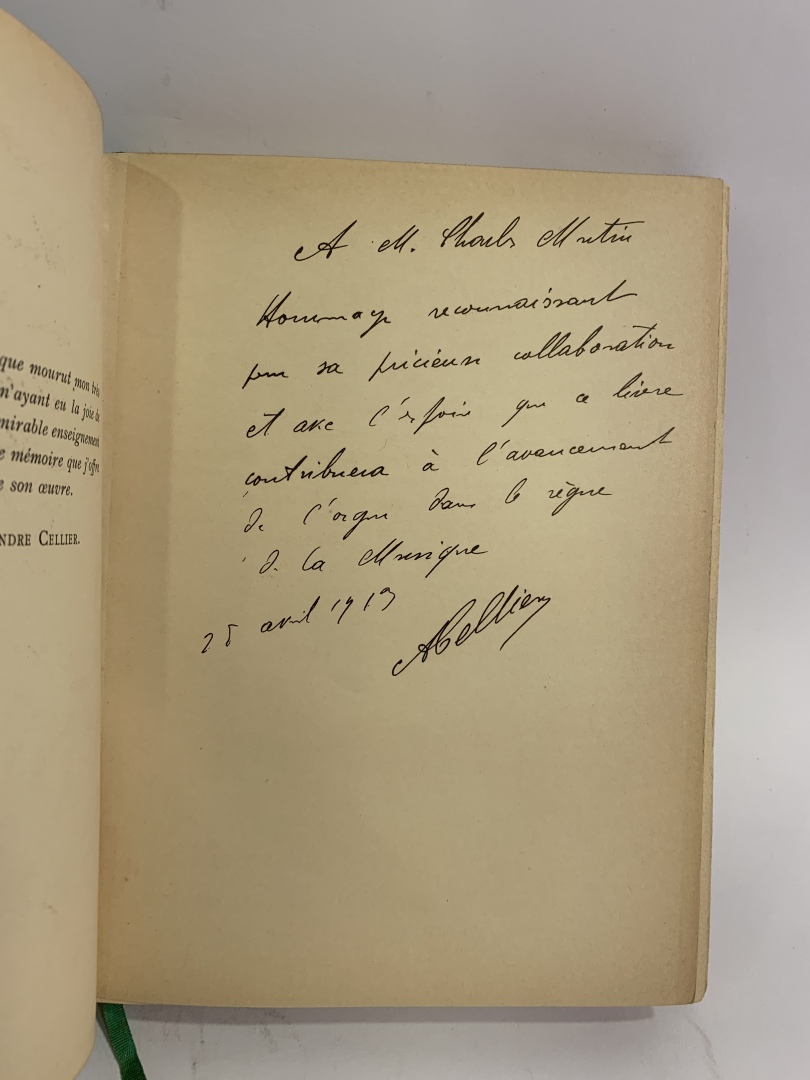 que mourut mon très
n'ayant eu la joie de
mirable enseignement
e mémoire que j'offre
e son œuvre.
NDRE CELLIER.
A M. Charles Mutin
Hommage reconnaissant
pour sa précieuse collaboration
et avec l'espoir que ce livre
contribuera à l'avancement
de l'orgue dans le règne
de la Musique
25 avril 1913
ACellier